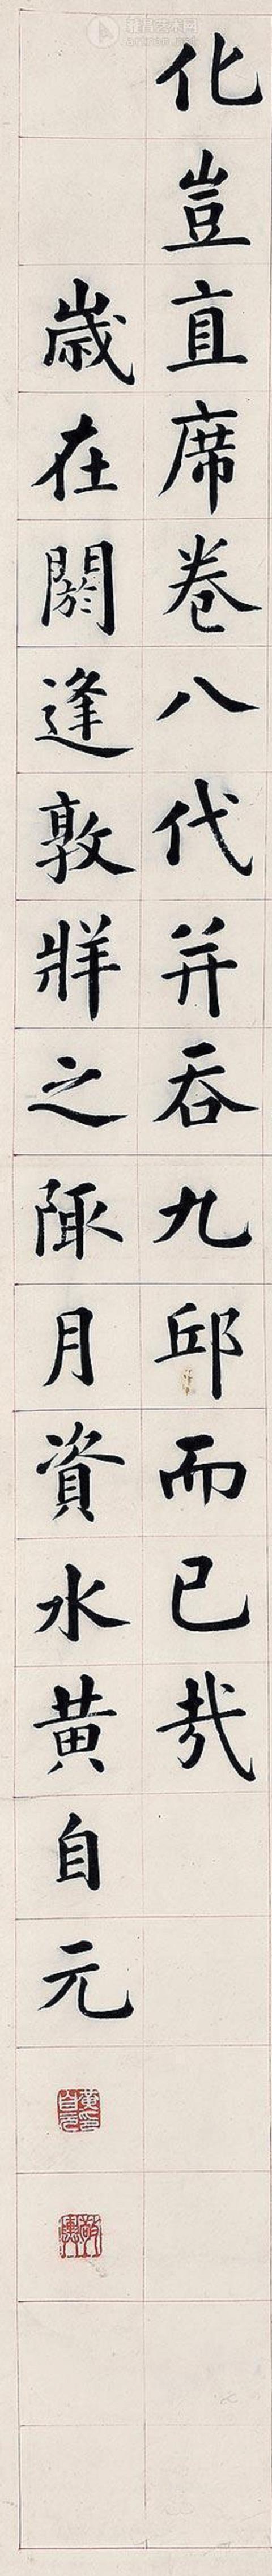 化豈直席卷八代并吞九邱而已哉
歲在閼逢敦牂之陬月資水黃自元
黃自元印
敬輿